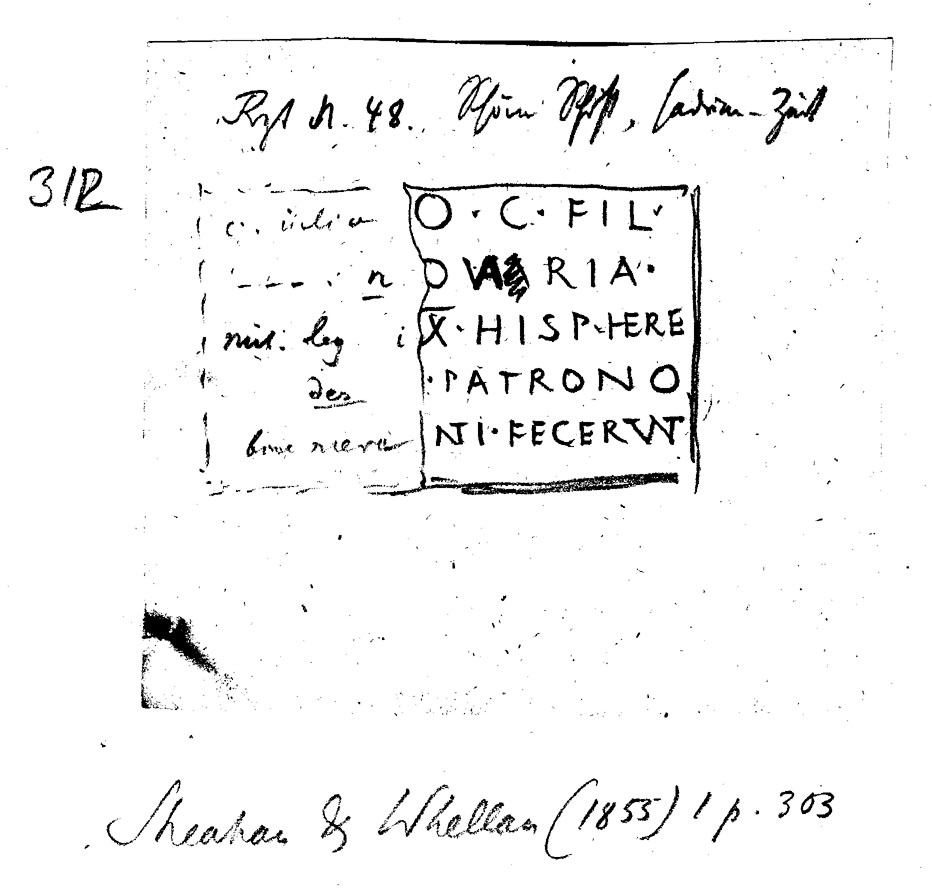 N. 48. Schöne Schrift, Hadrian-Zeit
312
c. iulio O · C · FIL ·
n O VARIA ·
mil. leg i X̅ · HISP · HERE
des · PATRONO
bene mere NTI · FECERVNT
Sheahan & Whellan (1855) 1 p. 303